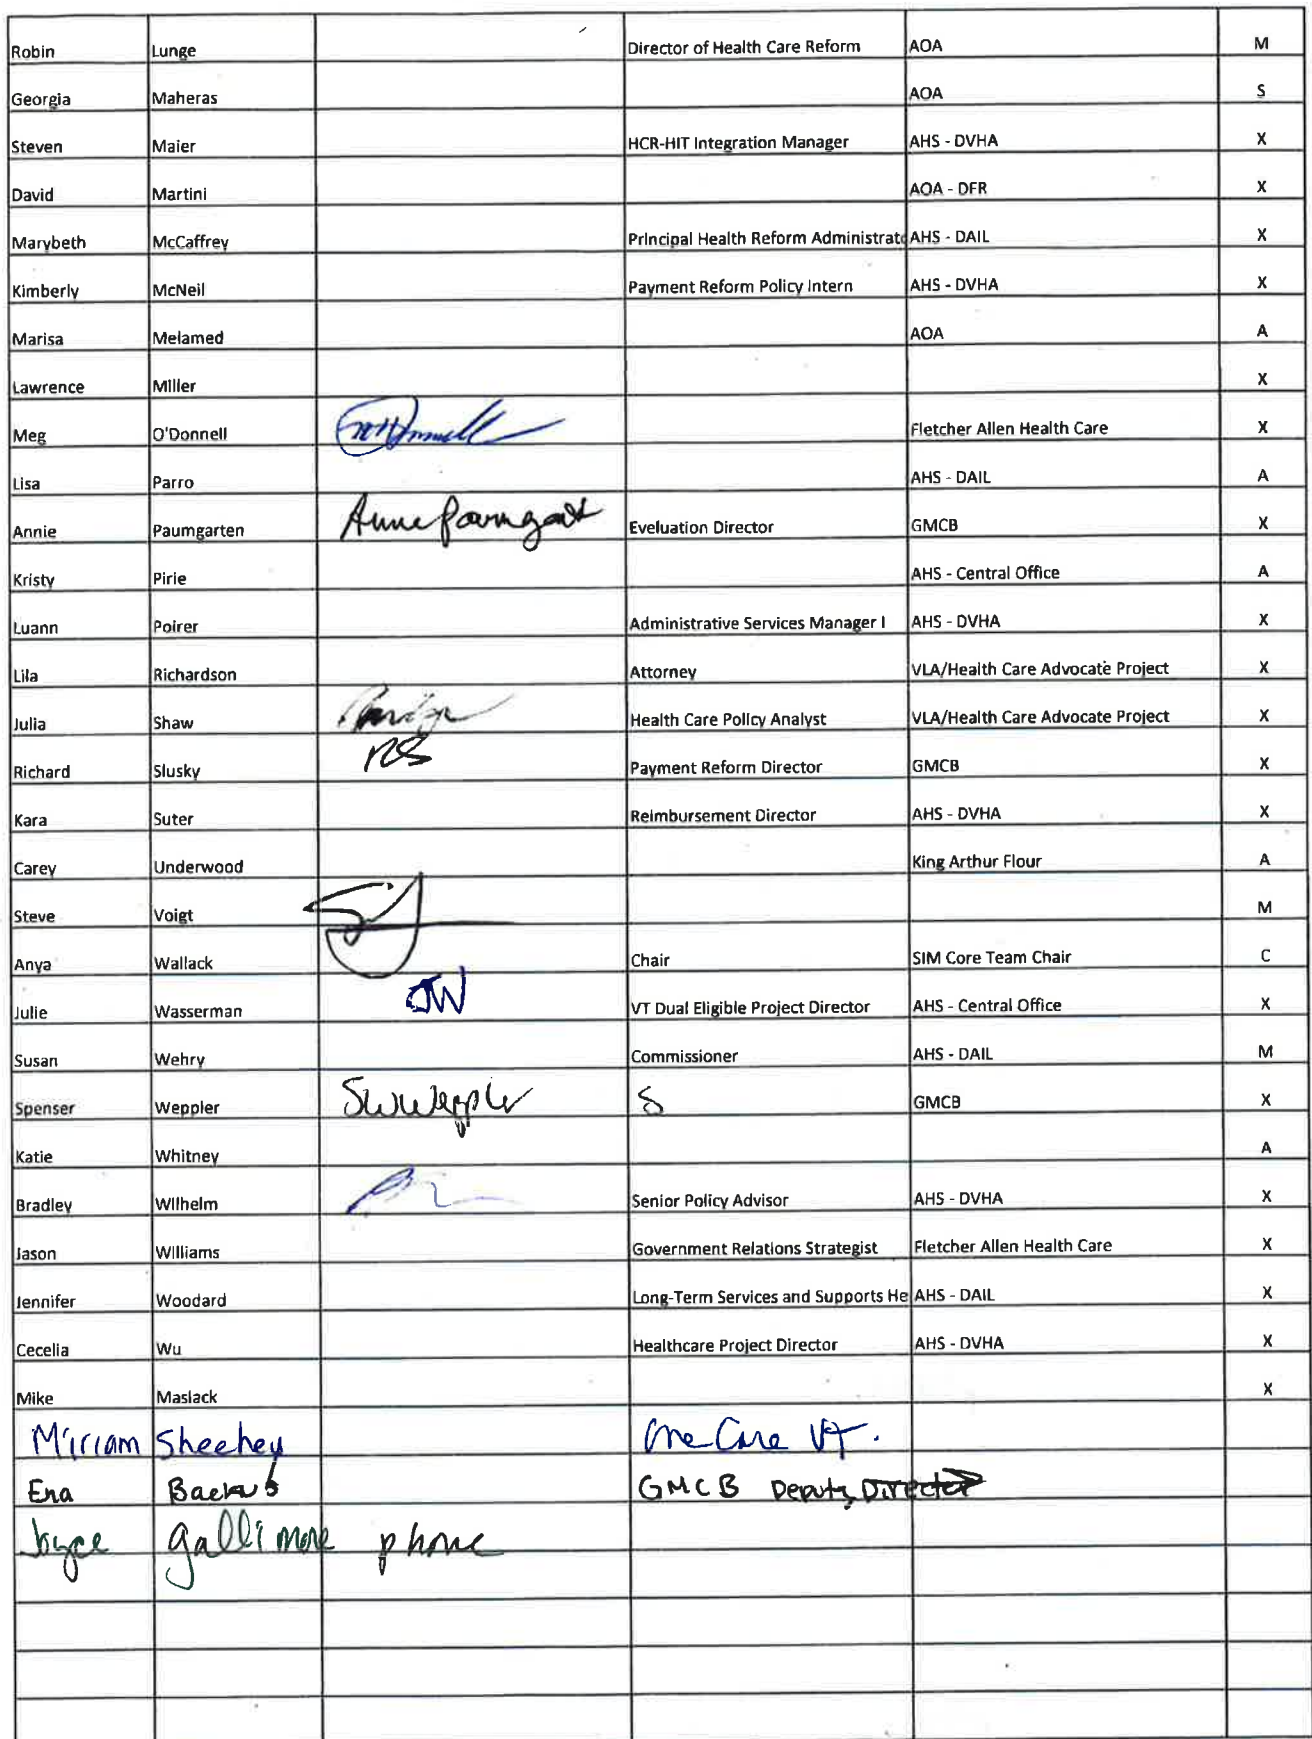 Robin Lunge Director of Health Care Reform AOA M
Georgia Maheras AOA S
Steven Maier HCR-HIT Integration Manager AHS - DVHA X
David Martini AOA - DFR X
Marybeth McCaffrey Principal Health Reform Administrato AHS - DAIL X
Kimberly McNeil Payment Reform Policy Intern AHS - DVHA X
Marisa Melamed AOA A
Lawrence Miller X
Meg O'Donnell Fletcher Allen Health Care X
Lisa Parro AHS - DAIL A
Annie Paumgarten Eveluation Director GMCB X
Kristy Pirie AHS - Central Office A
Luann Poirer Administrative Services Manager I AHS - DVHA X
Lila Richardson Attorney VLA/Health Care Advocate Project X
Julia Shaw Health Care Policy Analyst VLA/Health Care Advocate Project X
Richard Slusky RS Payment Reform Director GMCB X
Kara Suter Reimbursement Director AHS - DVHA X
Carey Underwood King Arthur Flour A
Steve Voigt M
Anya Wallack Chair SIM Core Team Chair C
Julie Wasserman JW VT Dual Eligible Project Director AHS - Central Office X
Susan Wehry Commissioner AHS - DAIL M
Spenser Weppler SWWeppler S GMCB X
Katie Whitney A
Bradley Wilhelm Senior Policy Advisor AHS - DVHA X
Jason Williams Government Relations Strategist Fletcher Allen Health Care X
Jennifer Woodard Long-Term Services and Supports He AHS - DAIL X
Cecelia Wu Healthcare Project Director AHS - DVHA X
Mike Maslack X
Miriam Sheehey One Care VT.
Ena Backus GMCB Deputy Director
Joyce Gallimore phone